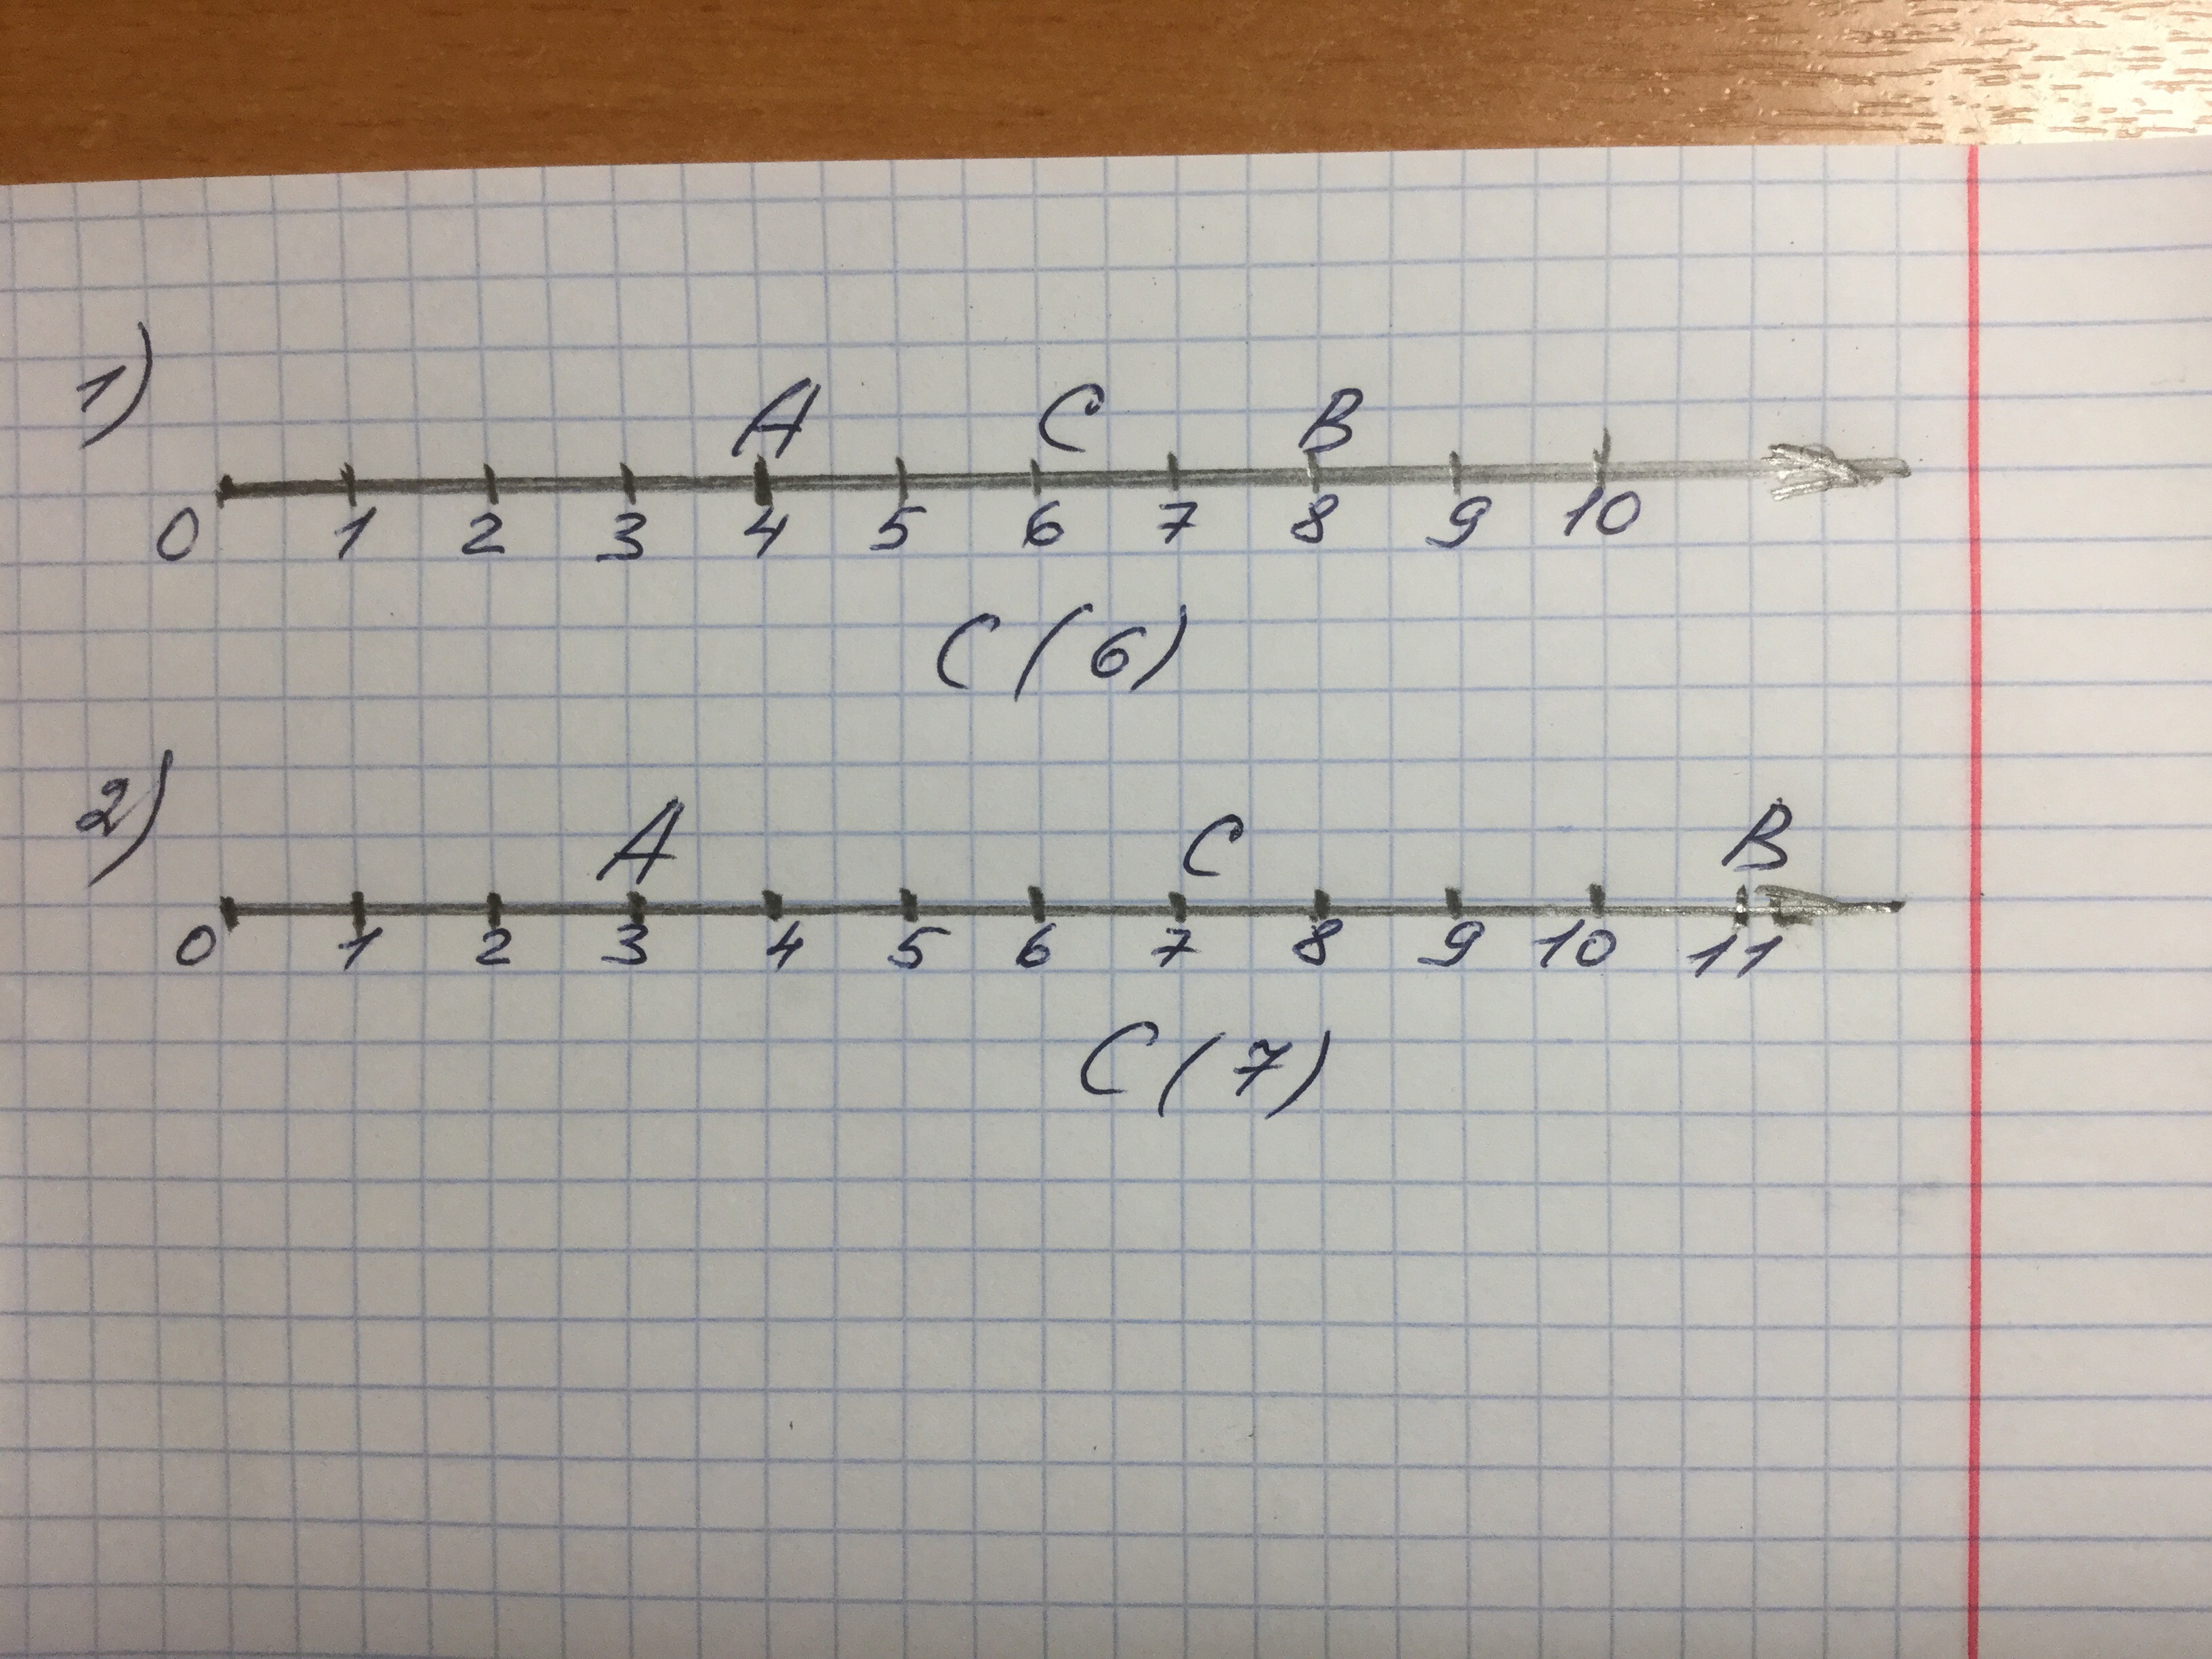 1)
A C B
0 1 2 3 4 5 6 7 8 9 10
C(6)
2)
A C B
0 1 2 3 4 5 6 7 8 9 10 11
C(7)